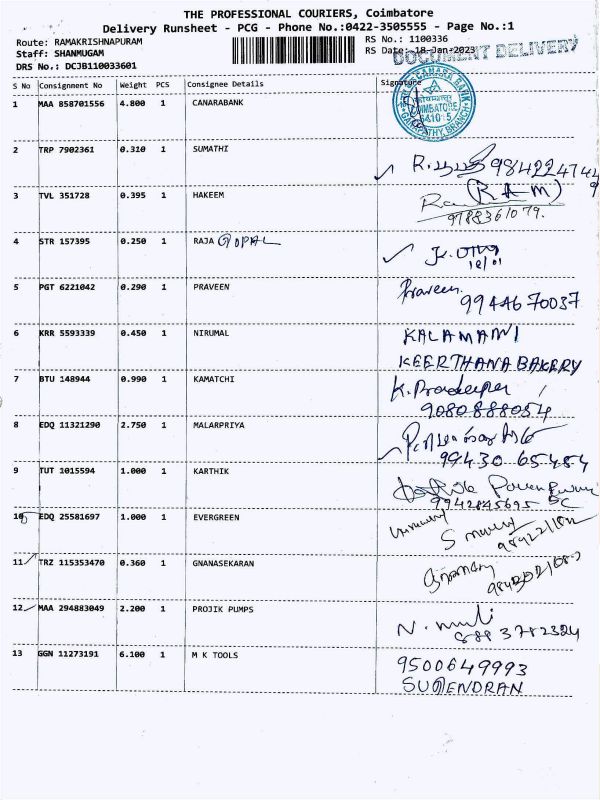 THE PROFESSIONAL COURIERS, Coimbatore
Delivery Runsheet - PCG - Phone No.:0422-3505555 - Page No.:1
Route: RAMAKRISHNAPURAM RS No.: 1100336
Staff: SHANMUGAM RS Date: 18-Jan-2023
DOCUMENT DELIVERY
DRS No.: DCJB110033601
S No Consignment No Weight PCS Consignee Details Signature
1 MAA 858701556 4.800 1 CANARABANK
CANARA BANK COIMBATORE GANAPATHY BRANCH
2 TRP 7902361 0.310 1 SUMATHI
3 TVL 351728 0.395 1 HAKEEM (RAM)
9788361079.
4 STR 157395 0.250 1 RAJA GOPAL
18/01
5 PGT 6221042 0.290 1 PRAVEEN Praveen.
9944670037
6 KRR 5593339 0.450 1 NIRUMAL KALAMANI
KEERTHANA BAKERY
7 BTU 148944 0.990 1 KAMATCHI K.Pradeepa
9080888054
8 EDQ 11321290 2.750 1 MALARPRIYA
99430 65484
9 TUT 1015594 1.000 1 KARTHIK
9942845695
10 EDQ 25581697 1.000 1 EVERGREEN
11 TRZ 115353470 0.360 1 GNANASEKARAN
12 MAA 294883049 2.200 1 PROJIK PUMPS
N.
13 GGN 11273191 6.100 1 M K TOOLS 9500649993
SURENDRAN